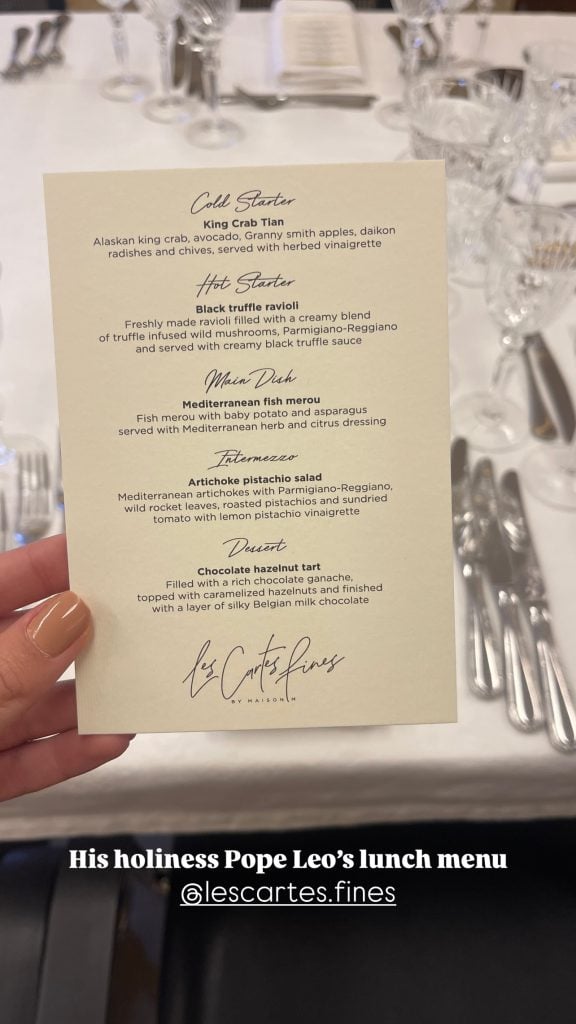 Cold Starter
King Crab Tian
Alaskan king crab, avocado, Granny smith apples, daikon
radishes and chives, served with herbed vinaigrette
Hot Starter
Black truffle ravioli
Freshly made ravioli filled with a creamy blend
of truffle infused wild mushrooms, Parmigiano-Reggiano
and served with creamy black truffle sauce
Main Dish
Mediterranean fish merou
Fish merou with baby potato and asparagus
served with Mediterranean herb and citrus dressing
Intermezzo
Artichoke pistachio salad
Mediterranean artichokes with Parmigiano-Reggiano,
wild rocket leaves, roasted pistachios and sundried
tomato with lemon pistachio vinaigrette
Dessert
Chocolate hazelnut tart
Filled with a rich chocolate ganache,
topped with caramelized hazelnuts and finished
with a layer of silky Belgian milk chocolate
Les Cartes Fines
BY MAISON M
His holiness Pope Leo's lunch menu
@lescartes.fines